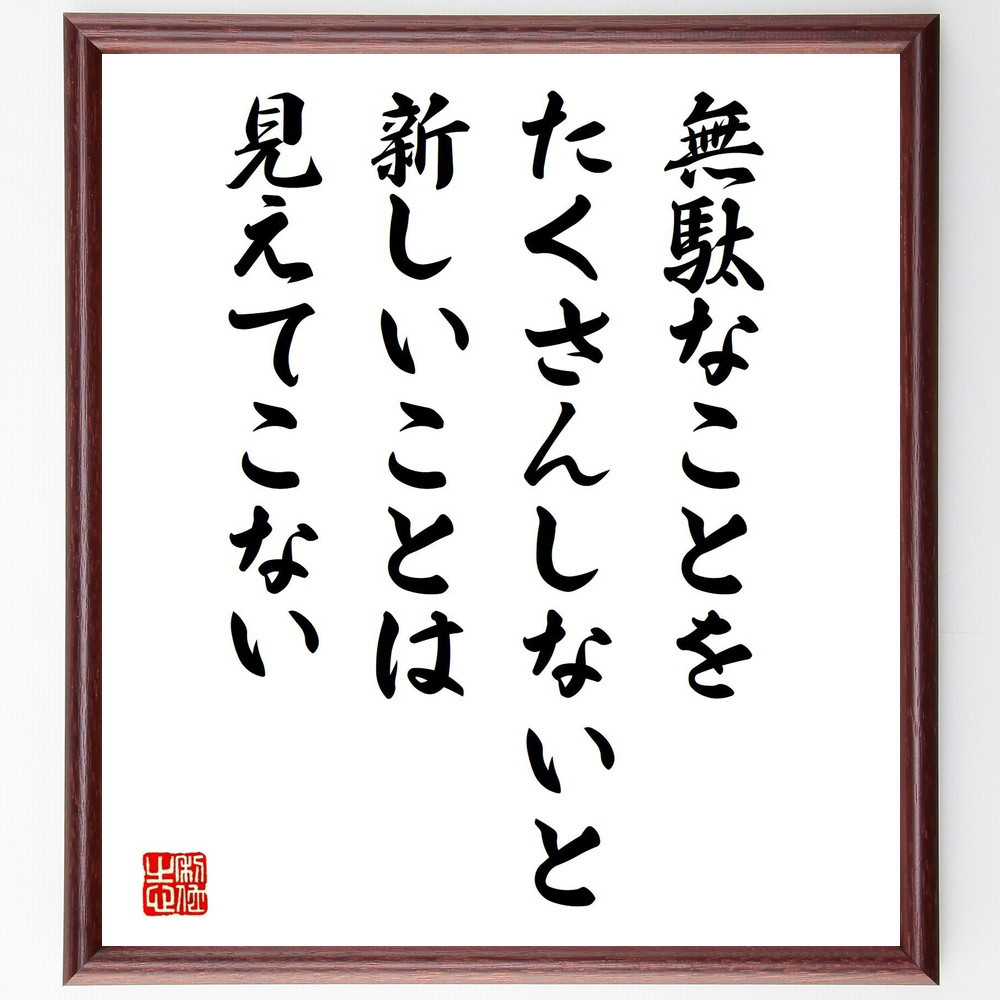 無駄なことを
たくさんしないと
新しいことは
見えてこない